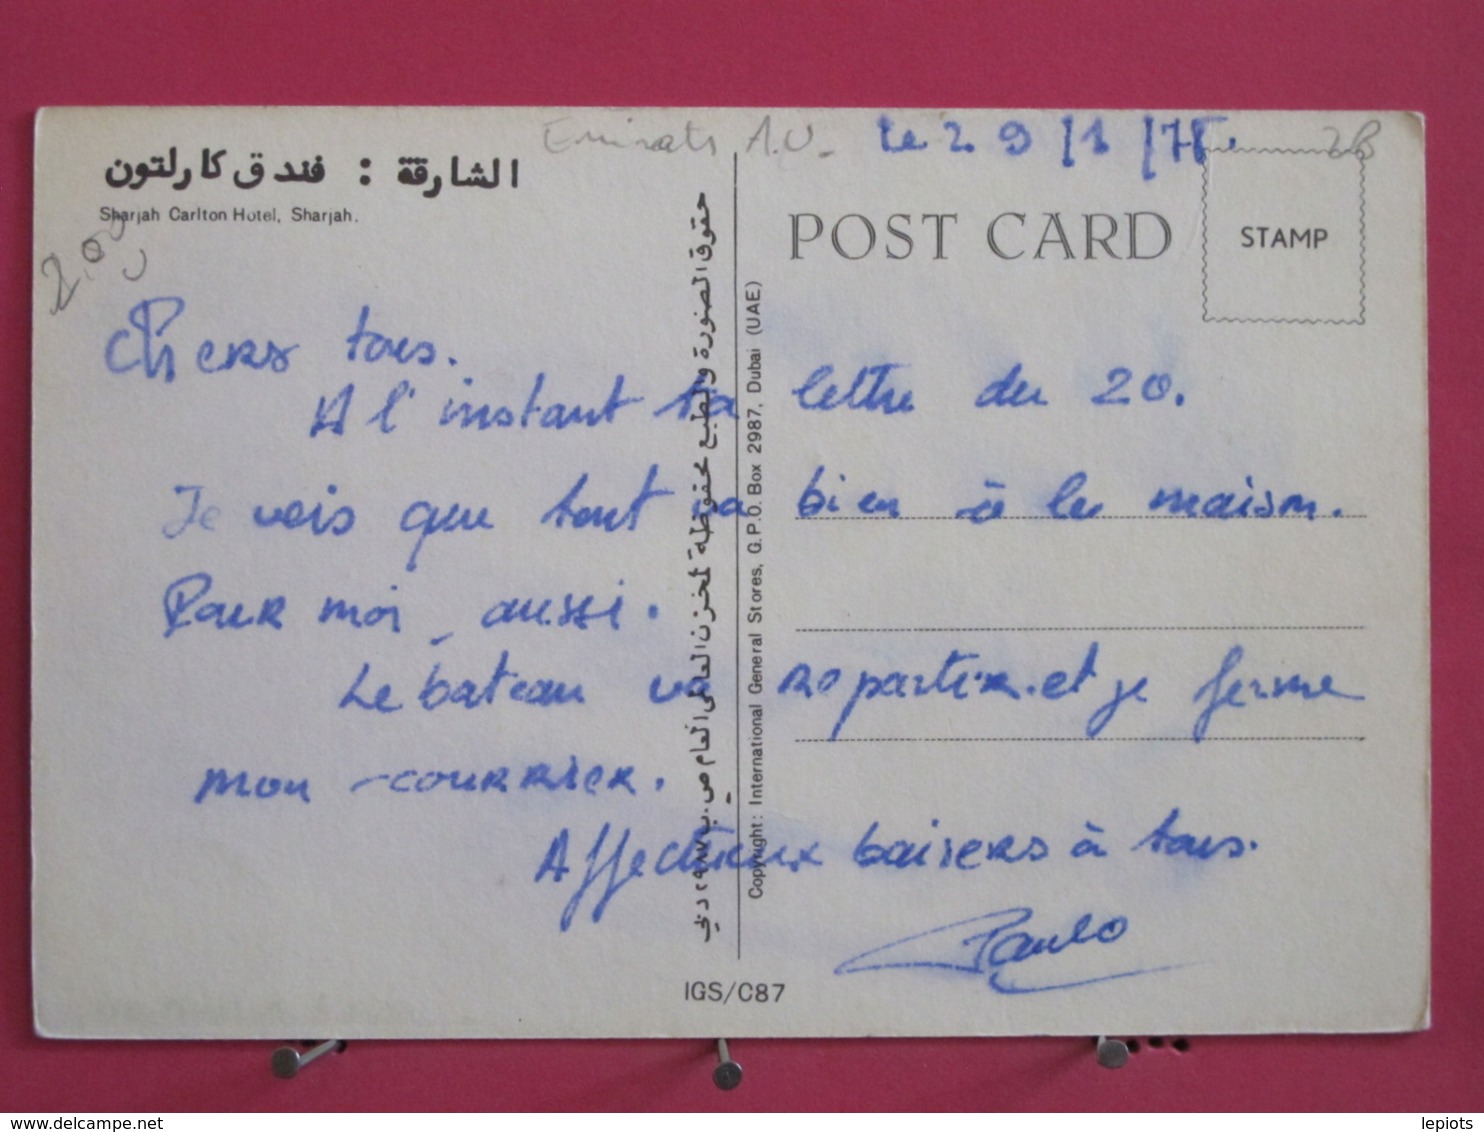 Emirats A.U.
le 29/1/75.
الشارقة : فندق كارلتون
Sharjah Carlton Hotel, Sharjah.
2.00
POST CARD
STAMP
Chers tous.
A l'instant ta lettre du 20.
Je vois que tout va bien à la maison.
Pour moi, aussi.
Le bateau va repartir et je ferme
mon courrier.
Affectueux baisers à tous.
Paulo
حقوق الصورة والطبع محفوظة لمخزن العالمى العام ص.ب ٢٩٨٧ دبي
Copyright: International General Stores, G.P.O. Box 2987, Dubai (UAE)
IGS/C87
delcampe.net
lepiots